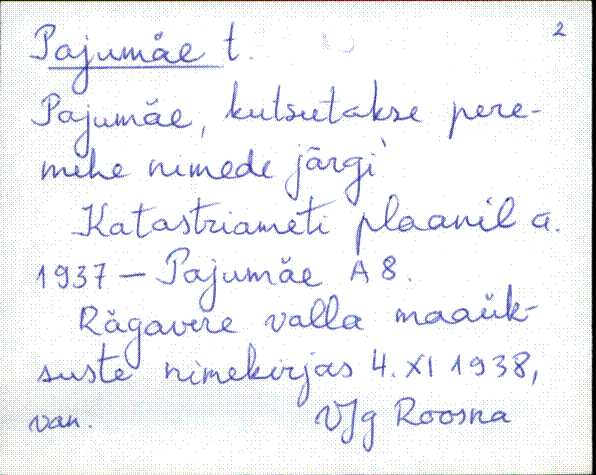 2
Pajumäe t.
Pajumäe, kutsutakse pere-
mehe nimede järgi
Katastriameti plaanil a.
1937 — Pajumäe A 8.
Rägavere valla maaük-
suste nimekirjas 4. XI 1938,
van. VJg Roosna